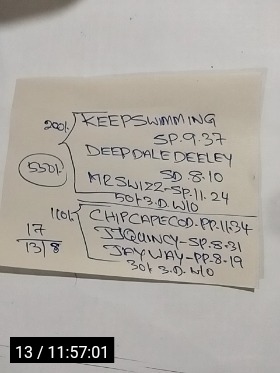 200/-
KEEPSWIMMING
SP.9.37
DEEPDALEDEELEY
SD.8.10
MRSWIZZ-SP.11.24
50/- 3.D.W/O
550/-
110/-
CHIPCAPECOD-PP.11.34
JJQUINCY-SP.8.31
JAYWAY-PP.8.19
30/- 3.D.W/O
17
13/8
13 / 11:57:01